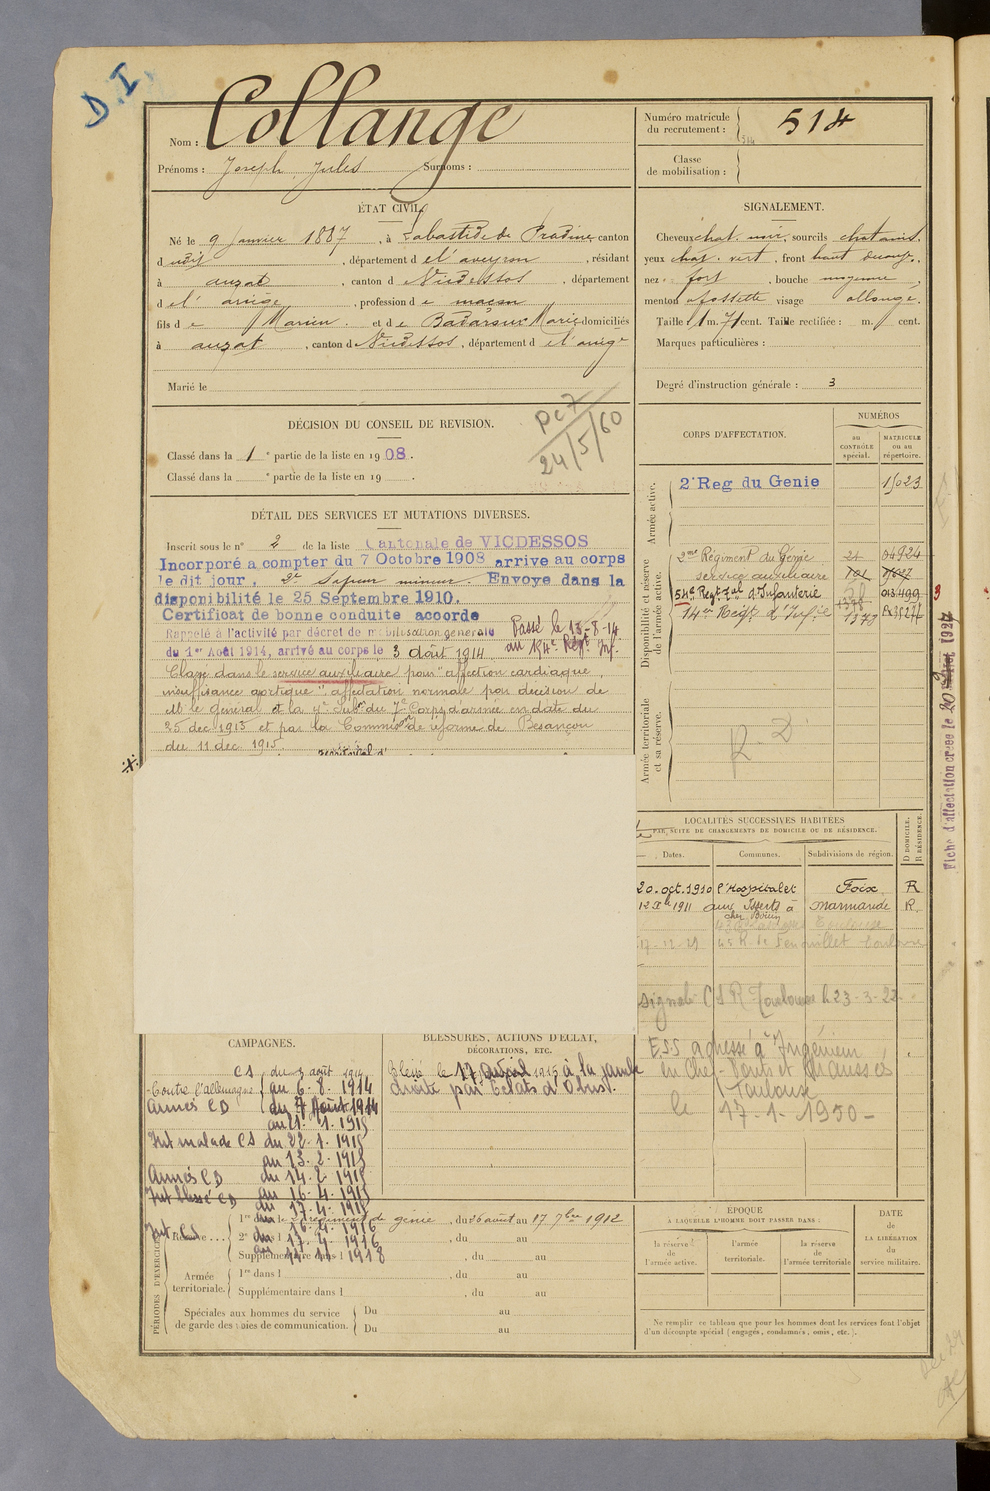 D.I.
Nom : Collange
Prénoms : Joseph Jules Surnoms :
Numéro matricule
du recrutement : 514
Classe
de mobilisation :
ÉTAT CIVIL.
Né le 9 Janvier 1887, à Labastide de Pradines canton
dudit, département de l'aveyron, résidant
à auzat, canton de Vicdessos, département
de l'ariège, profession de maçon
fils de Marien et de Marie domiciliés
à auzat, canton d Vicdessos, département d el'ariège
Marié le
SIGNALEMENT.
Cheveux chat. noir, sourcils chatains,
yeux chat. vert, front haut
nez fort, bouche moyenne,
menton à fossette visage allongé.
Taille : 1 m. 71 cent. Taille rectifiée : m. cent.
Marques particulières :
Degré d'instruction générale : 3
DÉCISION DU CONSEIL DE REVISION.
Classé dans la 1e partie de la liste en 1908.
Classé dans la e partie de la liste en 19 .
24/5/60
CORPS D'AFFECTATION.
NUMÉROS
au
CONTRÔLE
spécial.
MATRICULE
ou au
répertoire.
Armée active.
2e Reg du Genie
Disponibilité et réserve
de l'armée active.
2me Régiment du Génie 21 04924
service auxiliaire 101
54e Regt Tal d'Infanterie
14e Regt d'Infie 1379
Armée territoriale
et sa réserve.
R. D
DÉTAIL DES SERVICES ET MUTATIONS DIVERSES.
Inscrit sous le n° 2 de la liste Cantonale de VICDESSOS
Incorporé a compter du 7 Octobre 1908 arrive au corps
le dit jour, 2e Sapeur mineur. Envoye dans la
disponibilité le 25 Septembre 1910.
Certificat de bonne conduite accorde
Rappelé à l'activité par décret de mobilisation générale
du 1er Août 1914, arrivé au corps le 3 Août 1914
Passé le 13-8-14
au 14e Régt Inf.
Classé dans le service auxiliaire pour "affection cardiaque,
insuffisance aortique", affectation normale par décision de
Mr le général et la 4e Subon du 7e Corps d'armée en date du
25 dec 1915 et par la Commission de réforme de Besançon
du 11 dec. 1915.
Fiche d'affectation créée le 20
LOCALITÉS SUCCESSIVES HABITÉES
PAR SUITE DE CHANGEMENTS DE DOMICILE OU DE RÉSIDENCE.
Dates. Communes. Subdivisions de région. D DOMICILE. R RÉSIDENCE.
20.oct.1910 l'Hospitalet Foix R
12 Xbre 1911 aux Isserts à Marmande R.
chez Bouin
17-12-29 45 R. de Toulouse
signalé C S R Toulouse le 23-3-22
ESS adressé à Ingénieur
en Chef Ponts et Chaussées
Toulouse
le 17-1-1950-
CAMPAGNES.
CS du 3 août 1914
Contre l'allemagne au 6.8.1914
Armées CD du 7 Août 1914
au 21.1.1915
Int malade CS du 22.1.1915
au 13.2.1915
Armées CD du 14.2.1915
au 16.4.1915
Int blessé CD du 17.4.1915
BLESSURES, ACTIONS D'ÉCLAT,
DÉCORATIONS, ETC.
Blessé le 17 avril 1915 à la jambe
droite par Éclats d'Obus.
PÉRIODES D'EXERCICES
Réserve ... 1re dans le 2e régiment de génie, du 26 août au 17 7bre 1912
2e dans l , du au
Supplémentaire dans l , du au
Armée
territoriale. 1re dans l , du au
Supplémentaire dans l , du au
Spéciales aux hommes du service
de garde des voies de communication. Du au
Du au
ÉPOQUE
À LAQUELLE L'HOMME DOIT PASSER DANS :
la réserve
de
l'armée active.
l'armée
territoriale.
la réserve
de
l'armée territoriale
DATE
de
LA LIBÉRATION
du
service militaire.
Ne remplir ce tableau que pour les hommes dont les services font l'objet
d'un décompte spécial (engagés, condamnés, omis, etc.).